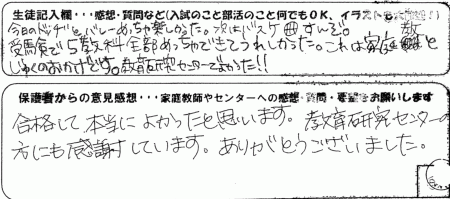 生徒記入欄・・・感想・質問など(入試のこと部活のこと何でもOK、イラストも
今日のドッヂとバレーめっちゃ楽しかった。次はバスケ
受験で5教科全部めっちゃできてうれしかった。これは家庭教師と
じゅくのおかげです。教育研究センターでよかった!!
保護者からの意見感想・・・家庭教師やセンターへの感想・質問・要望をお願いします
合格して本当によかったと思います。教育研究センターの
方にも感謝しています。ありがとうございました。